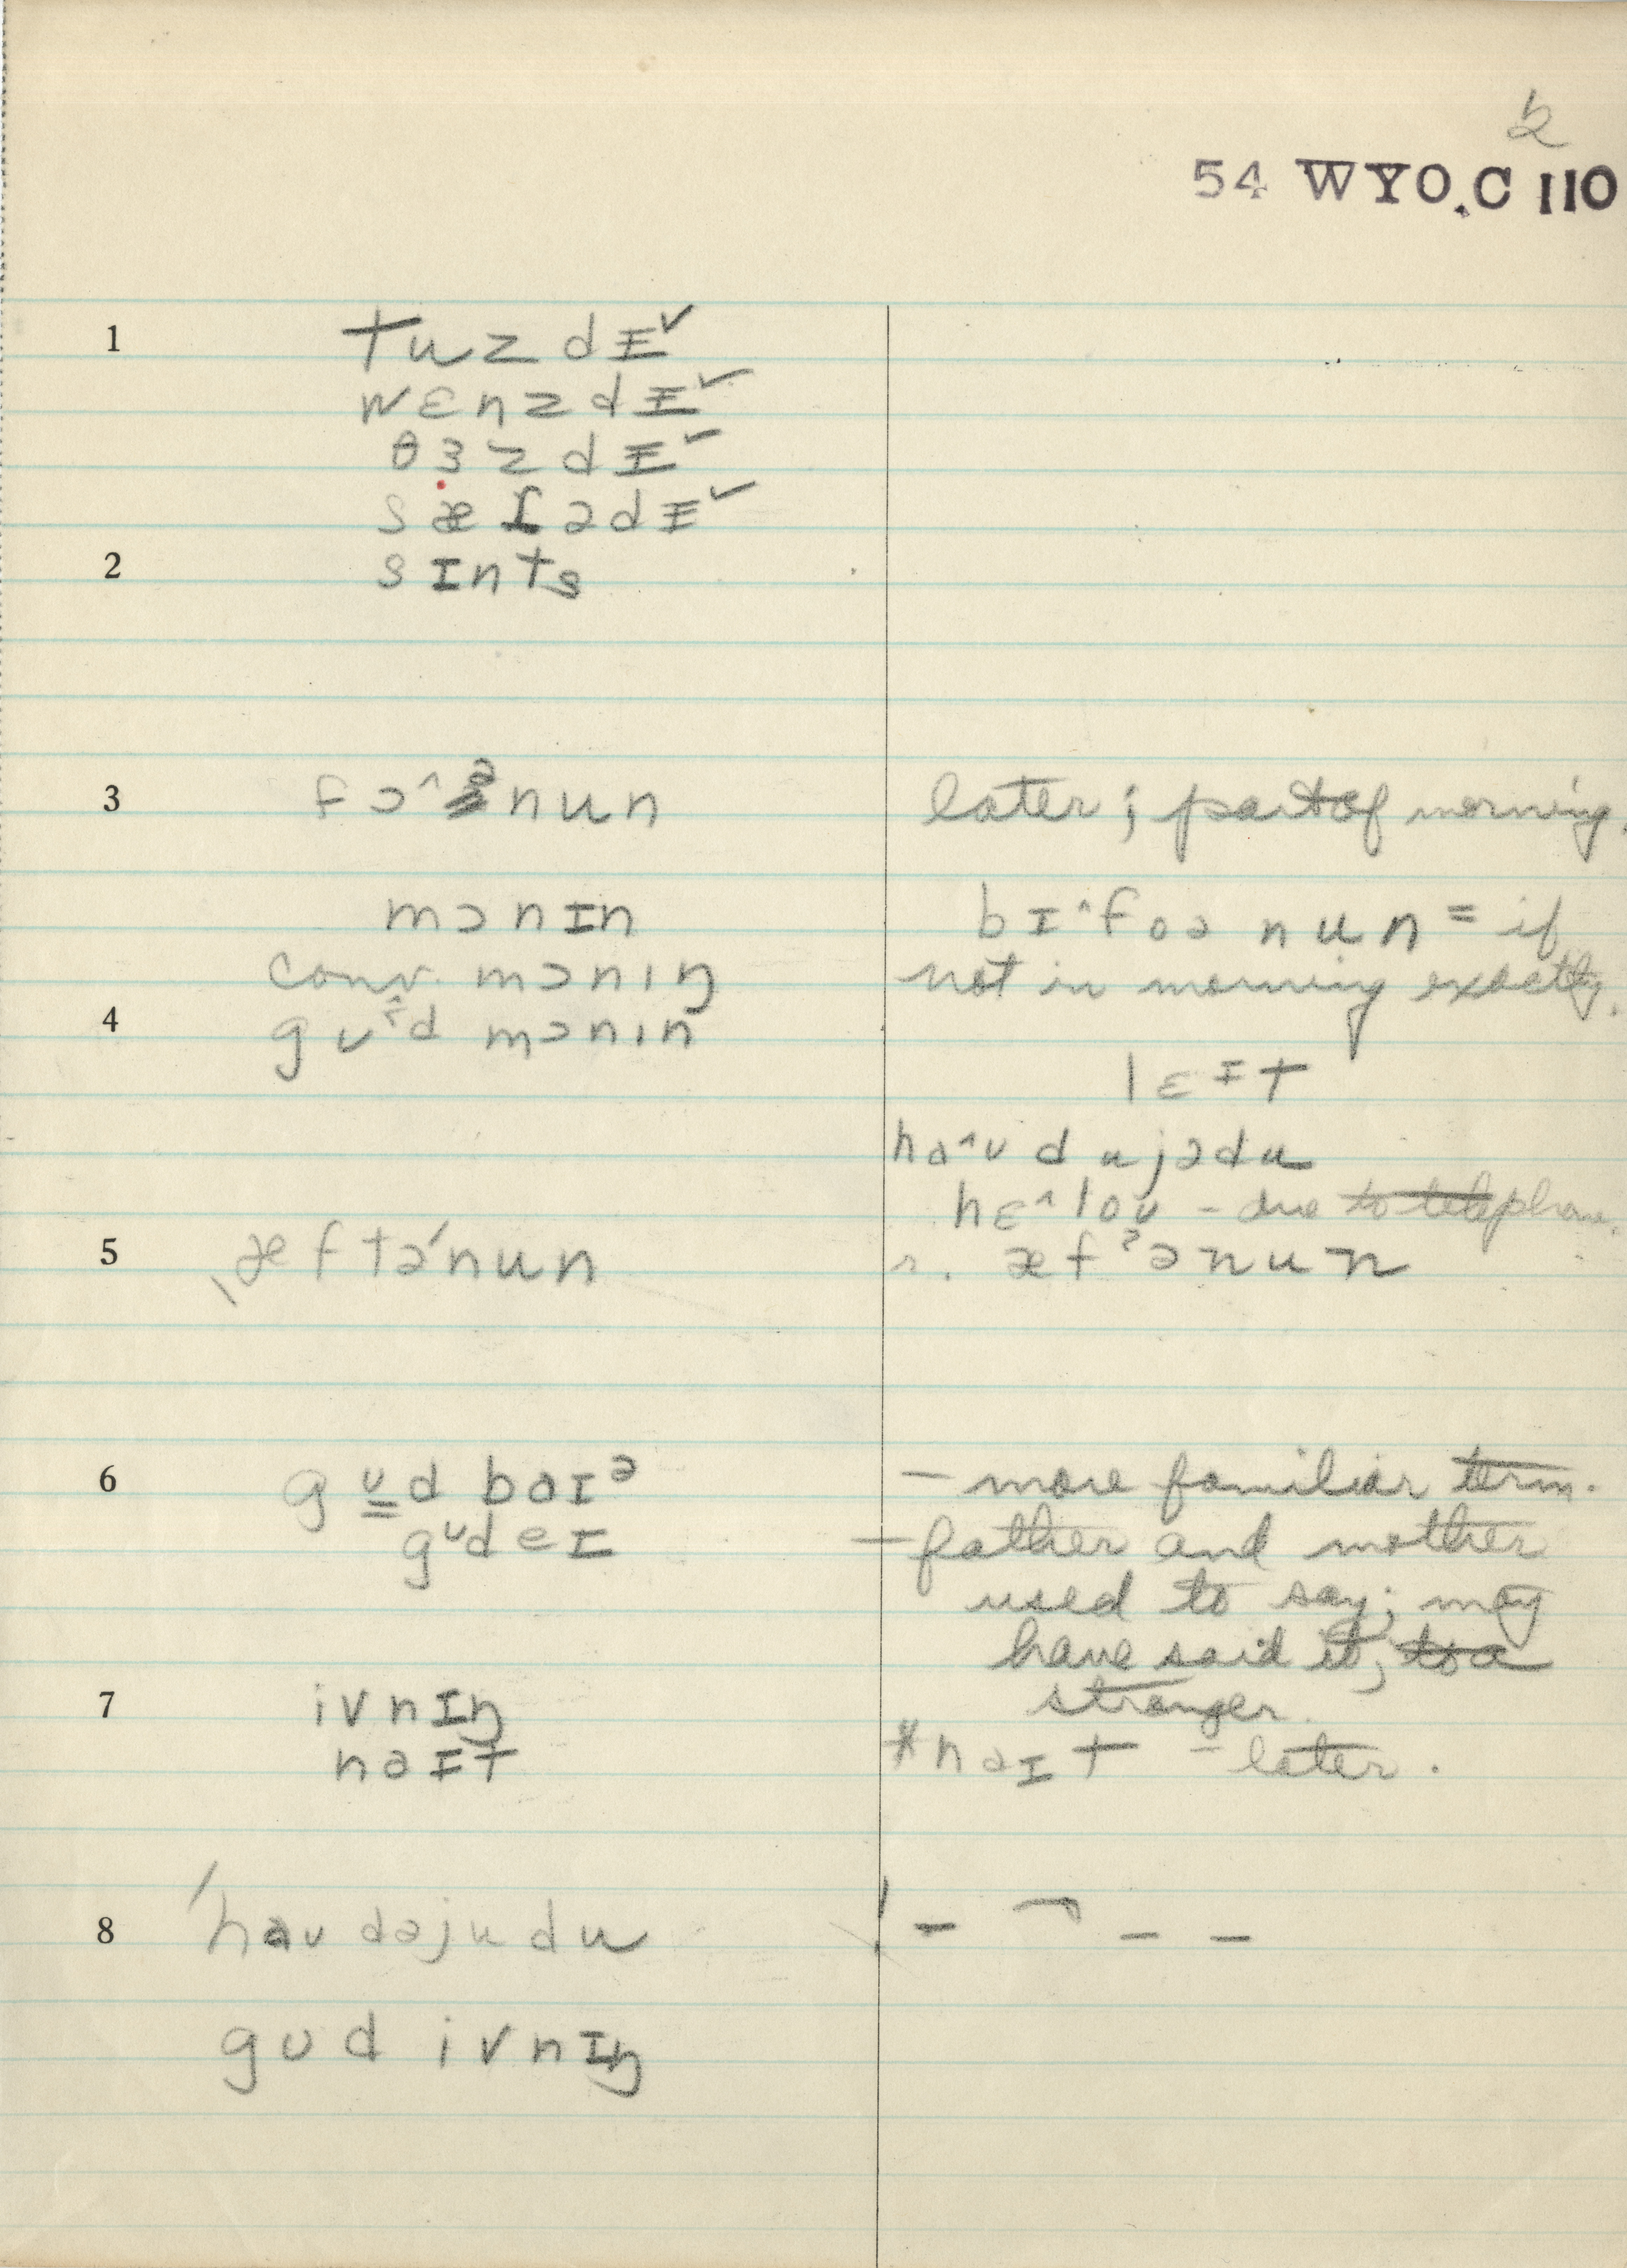 2
54 WYO.C 110
1 tuzdɪˇ
wɛnzdɪˇ
θɜzdɪˇ
sæɾədɪˇ
2 sɪnts
3 fɔ^ənun later; part of morning.
mɔnɪn bɪ^foə nun = if
conv. mɔnıŋ not in morning exactly.
4 gʊ^d mɔnın
lɛɪt
ha^ʊ dujədu
hɛ^loʊ – due to telephone.
5 ˌæftə'nun r. æfʔənun
6 gʊd baɪə – more familiar term.
gʊdeɪ – father and mother
used to say; may
have said it, to a
stranger.
7 ivnɪŋ
naɪt *naɪt – later.
8 'haʊ dəjudu
gʊd ivnɪŋ